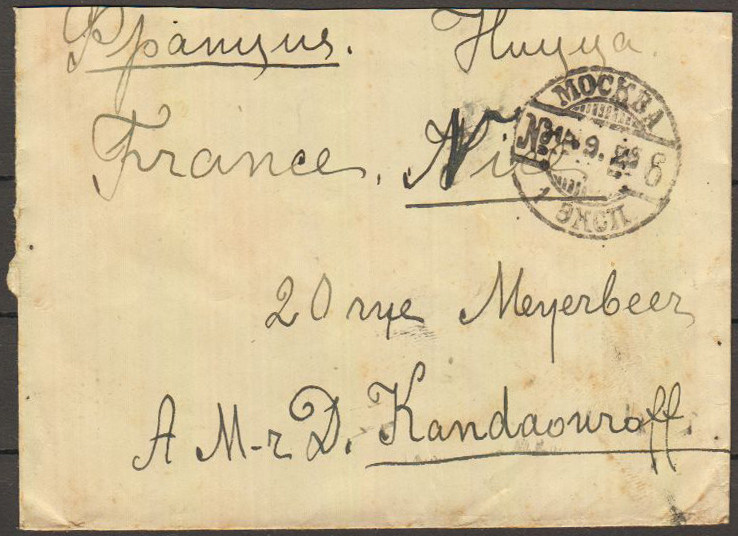 Франция. Ницца.
France, Nice
МОСКВА
9.
6
1 ЭКСП.
20 rue Meyerbeer
A M-r D. Kandaouroff.